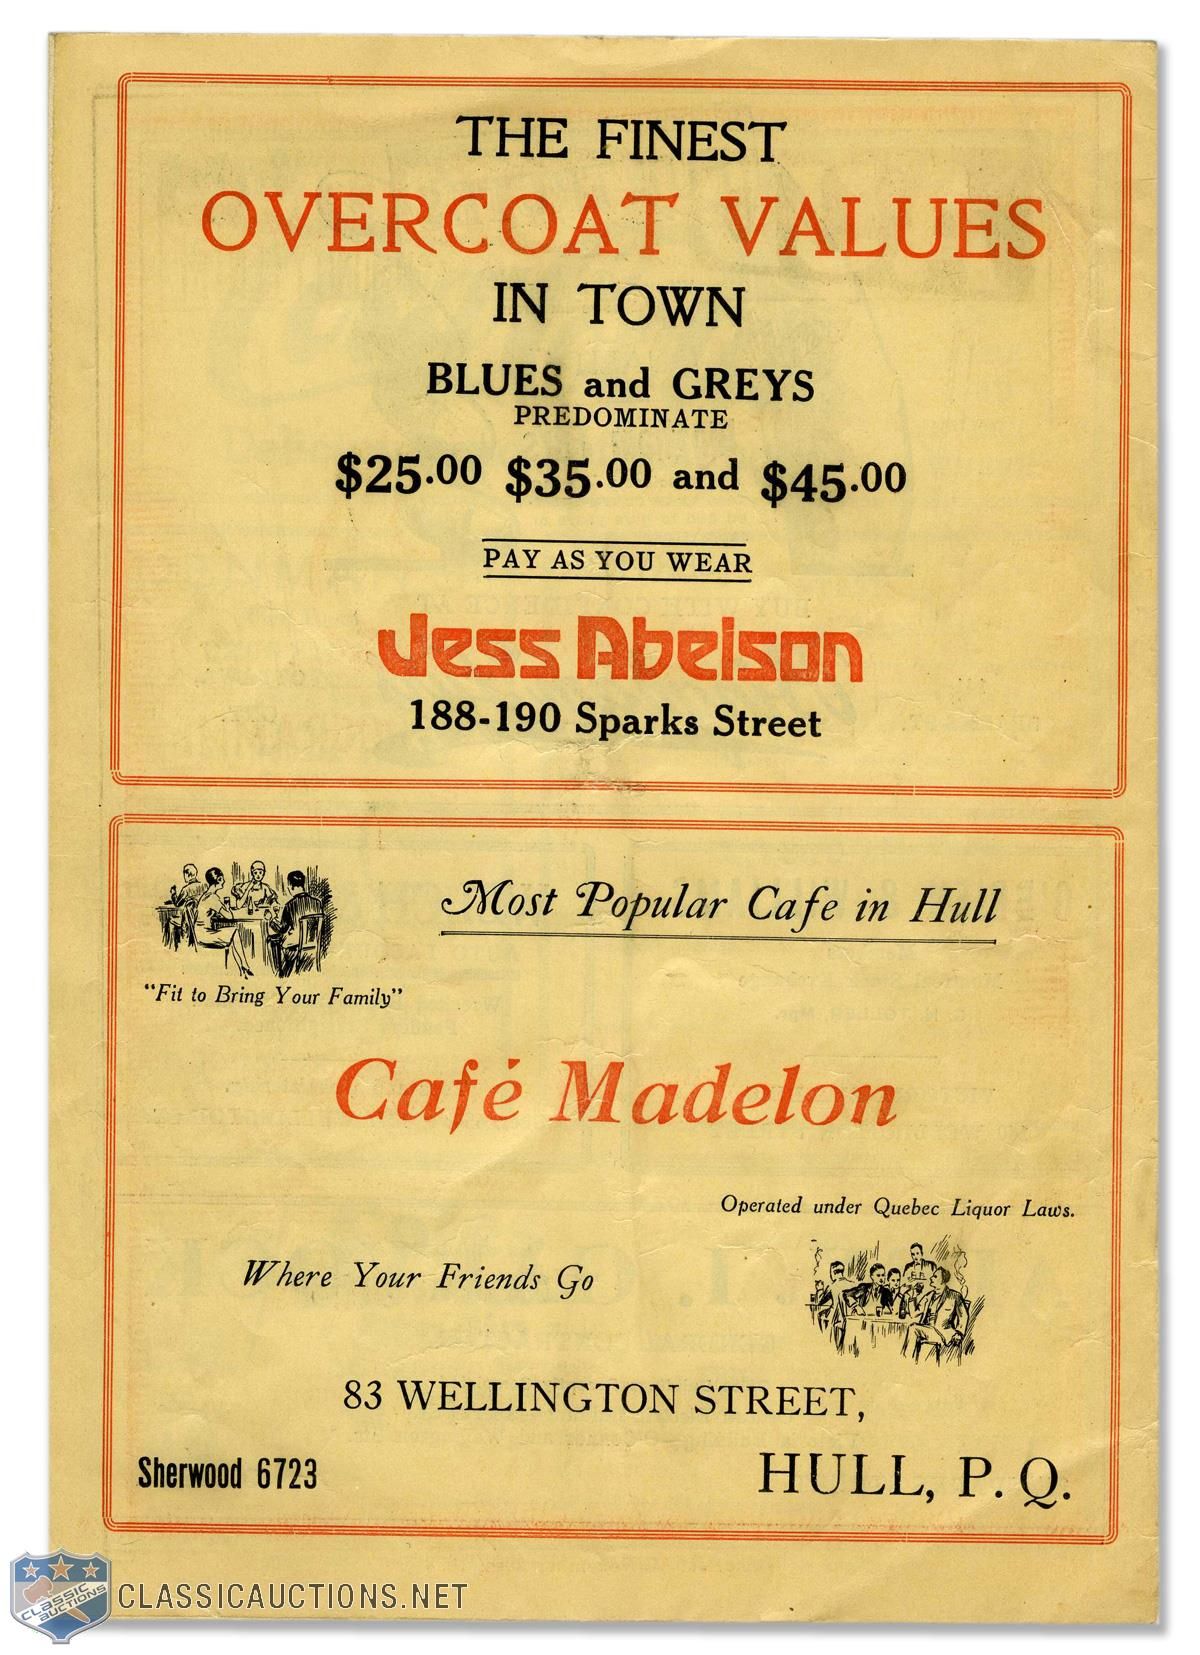 THE FINEST
OVERCOAT VALUES
IN TOWN
BLUES and GREYS
PREDOMINATE
$25.00 $35.00 and $45.00
PAY AS YOU WEAR
Jess Abelson
188-190 Sparks Street
Most Popular Cafe in Hull
"Fit to Bring Your Family"
Café Madelon
Operated under Quebec Liquor Laws.
Where Your Friends Go
83 WELLINGTON STREET,
Sherwood 6723
HULL, P. Q.
CLASSIC
AUCTIONS
CLASSICAUCTIONS.NET